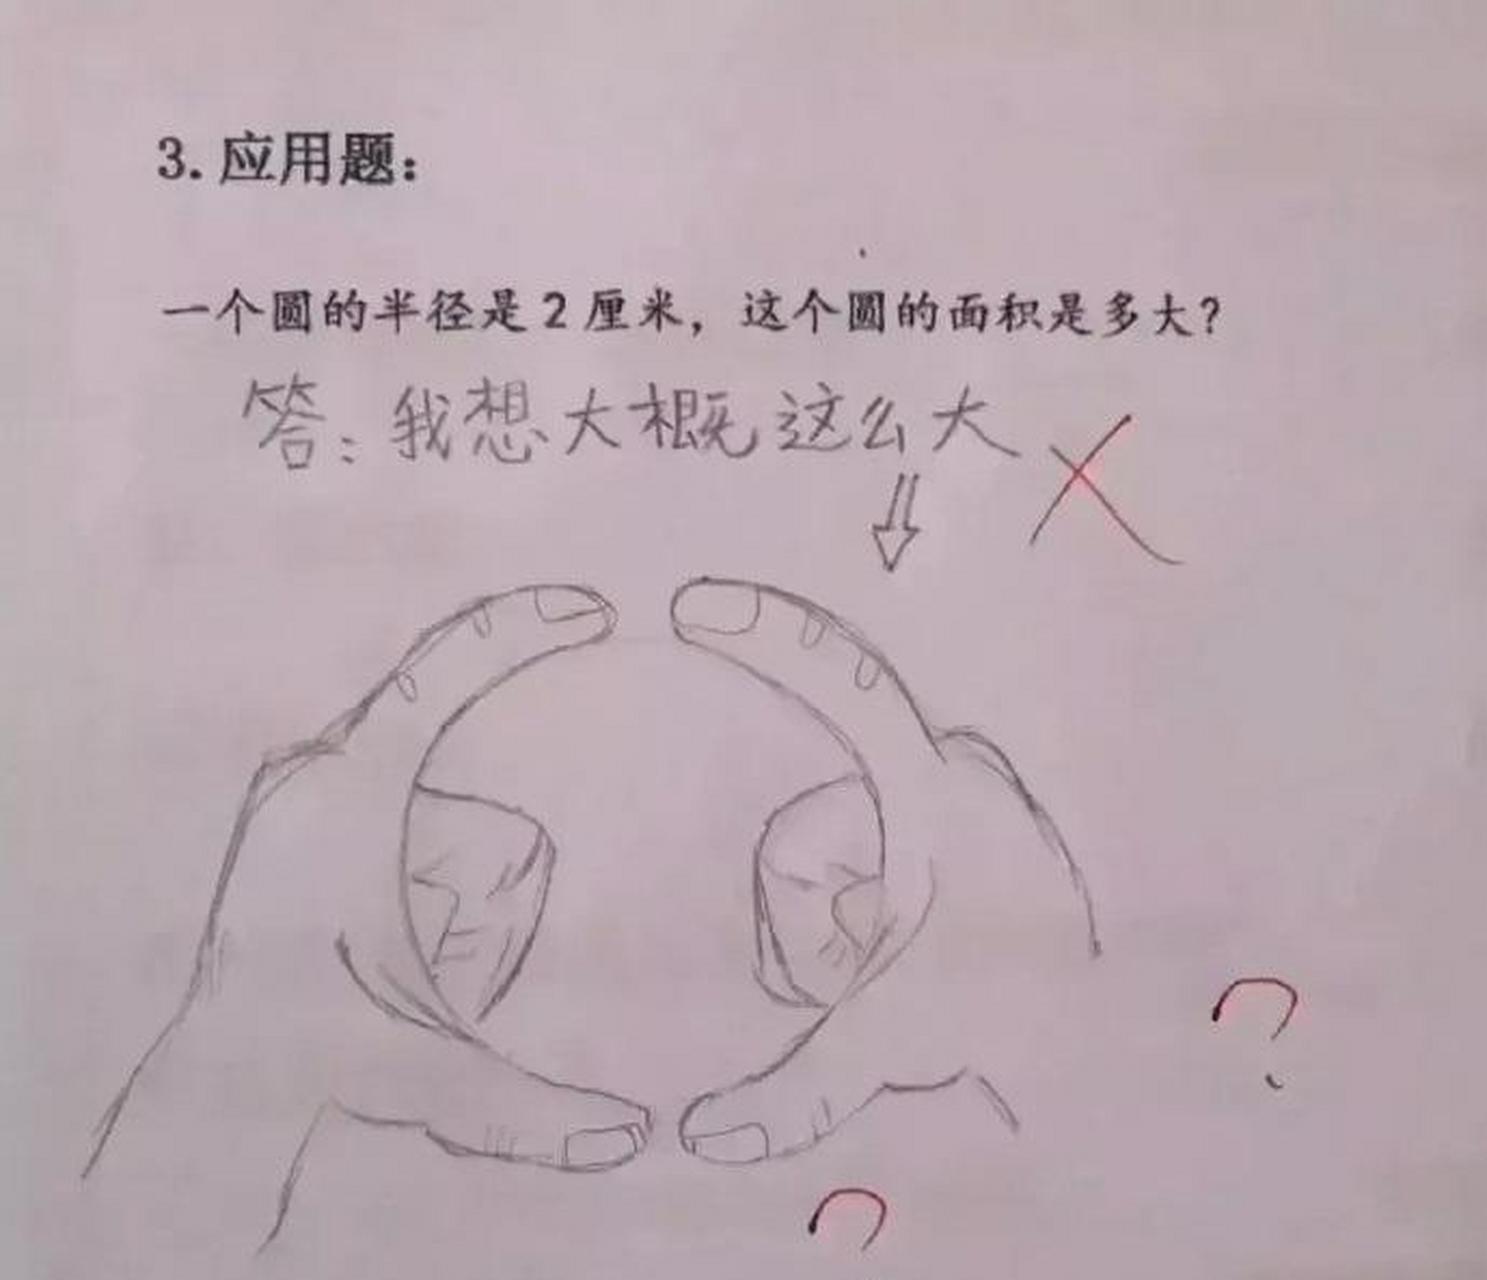 3. 应用题：
一个圆的半径是2厘米，这个圆的面积是多大？
答：我想大概这么大
?
?